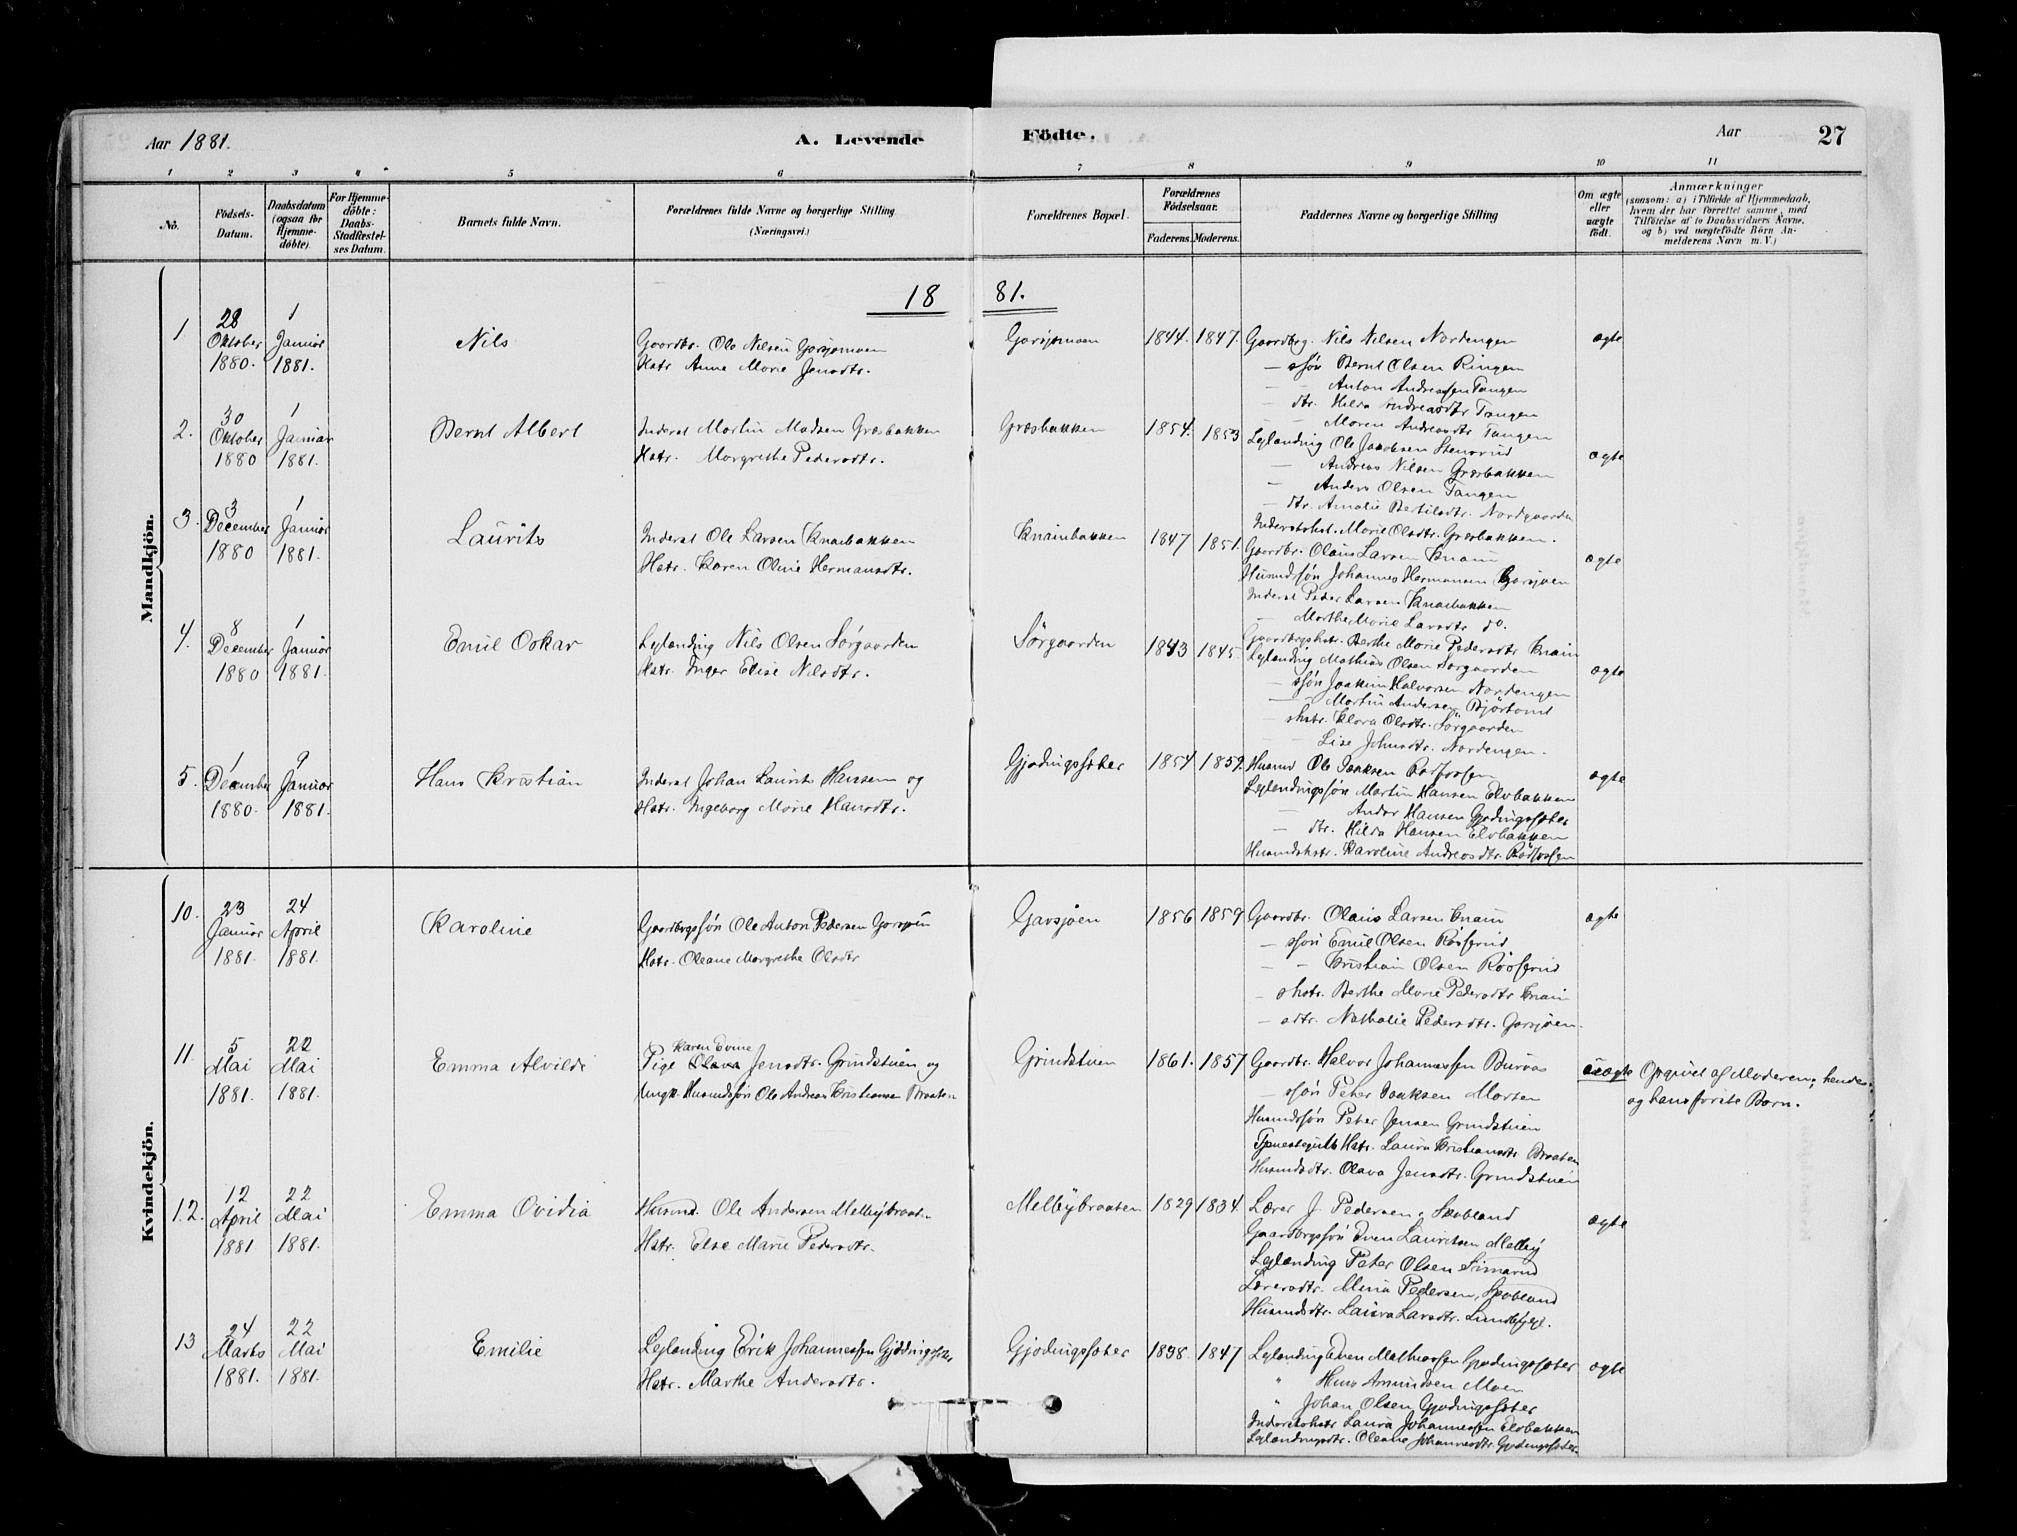 Aar 1881.
A. Levende Födte.
Aar 27
1 2 3 4 5 6 7 8 9 10 11
No.
Födsels-Datum.
Daabsdatum (ogsaa for Hjemme-döbte).
For Hjemme-döbte: Daabs-Stadfæstel-ses Datum.
Barnets fulde Navn.
Forældrenes fulde Navne og borgerlige Stilling (Næringsvei.)
Forældrenes Bopæl.
Forældrenes Födselsaar.
Faderens. Moderens.
Faddernes Navne og borgerlige Stilling
Om ægte eller uægte födt.
Anmærkninger
(saasom: a) i Tilfælde af Hjemmedaab, hvem der har forrettet samme, med Tilföielse af to Daabsvidners Navne. og b) ved uægtefödte Börn An-melderens Navn m. V.)
18 81.
Mandkjön.
1. 28 Oktober 1880. 1 Januar 1881. Nils
Gaardbr. Ole Nilsen Garsjømoen
Hstr. Anne Marie Jensdtr.
Garsjømoen 1844. 1847.
Gaardbrg. Nils Nilsen Nordengen
— ssøn Bernt Olsen Ringen
— Anton Andreassen Tangen
— dtr. Hilda Andreasdtr Tangen
— Maren Andreasdtr Tangen
ægte
2. 30 Oktober 1880 1 Januar 1881. Bernt Albert
Inderst Martin Madsen Græsbakken
Hstr. Margrethe Pedersdtr.
Græsbakken 1854. 1853
Leilænding Ole Jacobsen Stensrud
— Andreas Nilsen Græsbakken
— Anders Olsen Tangen
— dtr. Amalie Bertilsdtr. Nordgaarden
Inderstshst. Marie Olsdtr. Græsbakken.
ægte
3. 3 December 1880 1 Januar 1881. Laurits
Inderst Ole Larsen Knaibakken
Hstr. Karen Oline Hermansdtr.
Knaibakken 1847 1851.
Gaardbr. Olaus Larsen Knain
Husmdssøn Johannes Hermansen Garsjøen
Inderst Peder Larsen Knaibakken
— Marthe Marie Larsdtr do.
Gaardbrgshstr. Berthe Marie Pedersdtr Knain
ægte
4. 8 December 1880 1 Januar 1881. Emil Oskar
Leilænding Nils Olsen Sørgaarden
Hstr. Inger Elise Nilsdtr.
Sörgaarden 1843 1845
Leilænding Mathias Olsen Sørgaarden
— ssøn Joakim Halvorsen Nordengen
— Martin Andersen Bjørtomt
— shstr. Klara Olsdtr. Sørgaarden
Lise Johnsdtr. Nordengen.
ægte
5. 1 December 1880. 9 Januar 1881. Hans Kristian
Inderst Johan Laurits Hansen og
Hstr. Ingeborg Marie Hansdtr.
Gjødingssæter 1854 1859.
Husmd Ole Isaksen Rødfossen
Leilændingssøn Martin Hansen Elvbakken
— Anders Hansen Gjødingssæter
— dtr. Hilda Hansen Elvbakken
Husmdshstr. Karoline Andreasdtr. Rødfossen
ægte
Kvindekjön.
10. 23 Januar 1881. 24 April 1881. Karoline
Gaardbrgssøn Ole Anton Pedersen Garsjøen
Hstr. Oleane Margrethe Olsdtr
Garsjøen 1856 1859
Gaardbr. Olaus Larsen Knain
— ssøn Emil Olsen Røssrud
— — Kristian Olsen Røssrud
— shstr. Berthe Marie Pedersdtr Knain
— sdtr. Nathalie Pedersdtr. Garsjøen.
ægte
11. 5 Mai 1881. 22 Mai 1881. Emma Alvilde
Karen Evine
Pige Olava Jensdtr. Grindstuen og
Ungk. Husmdssøn Ole Andreas Kristiansen Braaten
Grindstuen 1861. 1857
Gaardbr. Halvor Johannessen Buraas
— ssøn Peter Isaksen Morten
Husmdssøn Peter Jensen Grindstuen
Tjenestegutts Hstr. Laura Kristiansdtr Braaten
Husmdsdtr. Olava Jensdtr. Grindstuen
uægte Opgivet af Moderen; hendes
og hans første Barn.
12. 12 April 1881 22 Mai 1881. Emma Ovidia
Husmd. Ole Andersen Melbybraaten
Hstr. Else Marie Pedersdtr.
Melbybraaten 1829 1834.
Lærer J. Pedersen, Skobland
Gaardbrgssøn Even Lauritsen Melby
Leilænding Peter Olsen Simarud
Lærersdtr. Mina Pedersen, Skobland
Husmdsdtr. Laura Larsdtr.
ægte
13 24 Marts 1881. 22 Mai 1881. Emilie
Leilænding Erik Johannessen Gjødingssæter
Hstr. Marthe Andersdtr.
Gjødingssæter 1838. 1847
Leilænding Even Mathiassen Gjødingssæter
" Hans Amundsen Moen
" Johan Olsen Gjødingssæter
Inderstshstr. Laura Johannessen Elvbakken
Leilændingsdtr. Oleane Johannesdtr. Gjødingssæter.
ægte